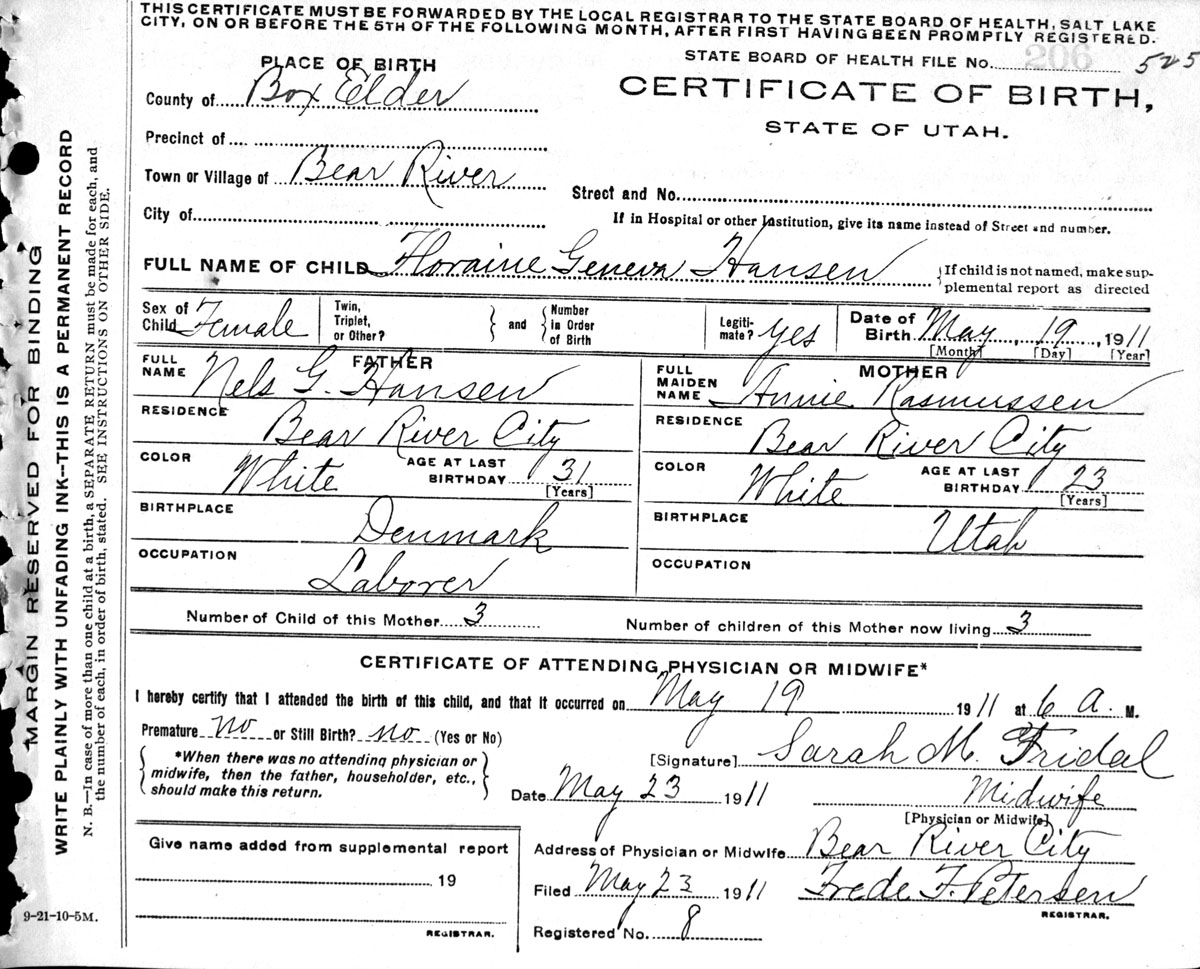 THIS CERTIFICATE MUST BE FORWARDED BY THE LOCAL REGISTRAR TO THE STATE BOARD OF HEALTH, SALT LAKE
CITY, ON OR BEFORE THE 5TH OF THE FOLLOWING MONTH, AFTER FIRST HAVING BEEN PROMPTLY REGISTERED.
STATE BOARD OF HEALTH FILE No. 206 525
PLACE OF BIRTH
CERTIFICATE OF BIRTH,
STATE OF UTAH.
County of Box Elder
Precinct of
Town or Village of Bear River
Street and No.
City of
If in Hospital or other Institution, give its name instead of Street and number.
FULL NAME OF CHILD Floraine Geneva Hansen
{If child is not named, make sup-
plemental report as directed
Sex of Child Female
Twin, Triplet, or Other? } and { Number in Order of Birth
Legiti-mate? yes
Date of Birth May, 19, 1911
[Month] [Day] [Year]
FATHER
FULL NAME Nels G. Hansen
RESIDENCE Bear River City
COLOR White AGE AT LAST BIRTHDAY 31
[Years]
BIRTHPLACE Denmark
OCCUPATION Laborer
MOTHER
FULL MAIDEN NAME Annie Rasmussen
RESIDENCE Bear River City
COLOR White AGE AT LAST BIRTHDAY 23
[Years]
BIRTHPLACE Utah
OCCUPATION
Number of Child of this Mother 3
Number of children of this Mother now living 3
CERTIFICATE OF ATTENDING PHYSICIAN OR MIDWIFE*
I hereby certify that I attended the birth of this child, and that it occurred on May 19 1911 at 6 a. M.
Premature no or Still Birth? no (Yes or No)
{ *When there was no attending physician or
midwife, then the father, householder, etc.,
should make this return. }
[Signature] Sarah M. Fridal
Date May 23 1911 Midwife
[Physician or Midwife]
Give name added from supplemental report
19
REGISTRAR.
Address of Physician or Midwife Bear River City
Filed May 23 1911 Frede F. Petersen
REGISTRAR.
Registered No. 8
MARGIN RESERVED FOR BINDING
WRITE PLAINLY WITH UNFADING INK--THIS IS A PERMANENT RECORD
N. B.—In case of more than one child at a birth, a SEPARATE RETURN must be made for each, and
the number of each, in order of birth, stated. SEE INSTRUCTIONS ON OTHER SIDE.
9-21-10-5M.